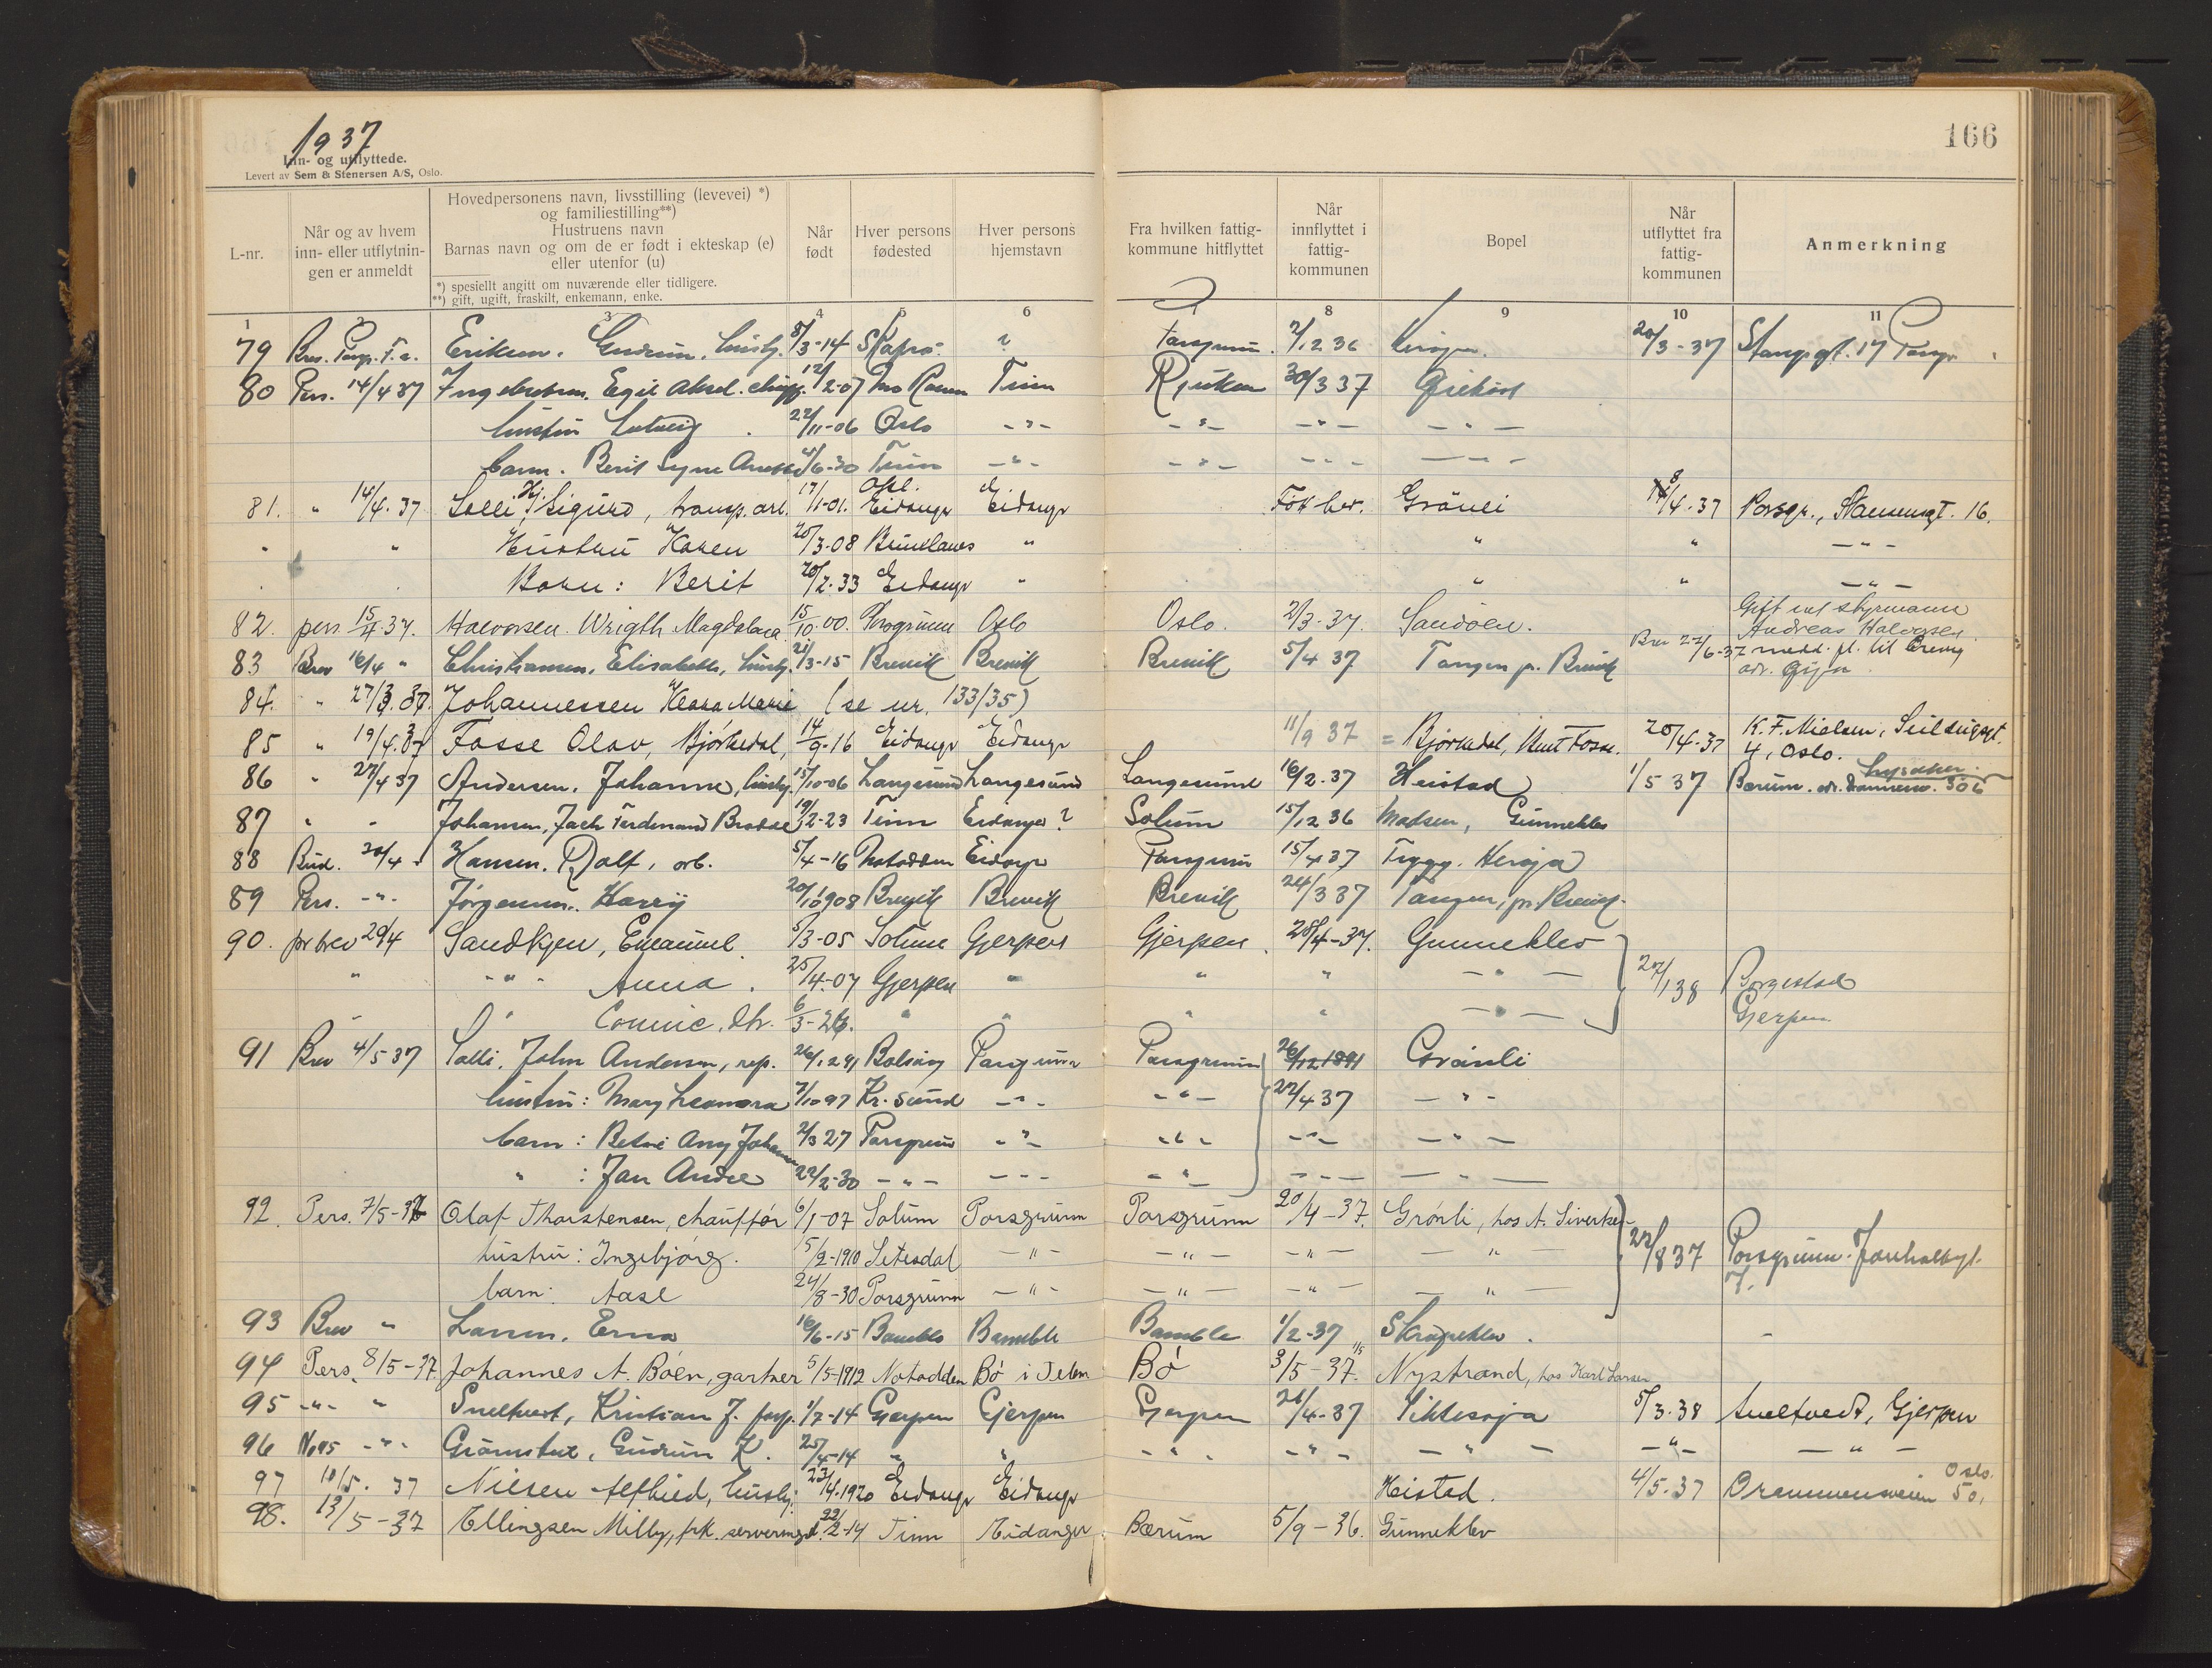 1937
Inn- og utflyttede.
Levert av Sem & Stenersen A/S, Oslo.
166
L-nr.
Når og av hvem inn- eller utflytnin-gen er anmeldt
Hovedpersonens navn, livsstilling (levevei) *)
og familiestilling**)
Hustruens navn
Barnas navn og om de er født i ekteskap (e)
eller utenfor (u)
*) spesiellt angitt om nuværende eller tidligere.
**) gift, ugift, fraskilt, enkemann, enke.
Når født
Hver persons fødested
Hver persons hjemstavn
Fra hvilken fattig-kommune hitflyttet
Når innflyttet i fattig-kommunen
Bopel
Når utflyttet fra fattig-kommunen
Anmerkning
1 2 3 4 5 6 8 9 10 11
79 Eriksen. Gudrun, hush. 8/3-14 ? Porsgrunn. 2/12 36 Herøya. 20/3-37 Stangsgt. 17 Porsgr.
80 Pers. 14/4 37 Ingebretsen. Egil Aksel. 12/2-07 Tinn Rjukan 30/3 37
hustru Solveig. 22/11-06 Oslo -"- -"- -"- -"-
barn. Berit 4/6-30 Tinn -"- -"- -"- -"-
81. " 14/4.37 Solli, Hj. Sigurd, transp.arb. 17/1-01. Eidanger Eidanger Før her. Grånli 8/4-37 Porsgr., 16.
" " Hustru Karen 20/3-08 Brunlanes " " " -"-
Barn: Berit 20/2.33 Eidanger " " " -"-
82. pers. 15/4.37. Halvorsen. Wrigth Magdalena 15/10.00. Porsgrunn Oslo Oslo. 2/3-37. Sandøen. Gift med styrmann
Andreas Halvorsen.
83 Brev 16/4 " Christiansen, Elisabeth, hush. 21/3-15 Brevik Brevik Brevik 5/4 37 Tangen p. Brevik Brev 22/6-37 medd. fl. til Brevig
84. " 27/3.37. Johannessen Klara Marie (se nr. 133/35)
85 " 19/4.37 Fosse Olav, Bjørkedal, 14/9-16 Eidanger Eidanger 11/9 37 = Bjørkedal, Knut Fosse. 20/4-37 K. F. Nielsen, Seilduksgt.
4, Oslo.
86 " 27/4 37 Andersen. Johanne, hush. 15/10-06 Langesund Langesund Langesund 16/2-37 Heistad 1/5 37 Bærum. Lysaker.
87 " " Johansen, Jack Ferdinand 19/2-23 Tinn Eidanger? Solum 15/12 36 Madsen, Gunneklev
88 Bud. 20/4 " Hansen. Rolf, arb. 5/4-16 Notodden Eidanger Porsgrunn 15/4 37 Trygg. Herøja
89 Pers. -"- Jørgensen. Harry 20/10 1908 Brevik Brevik Brevik 24/3 37 Tangen, pr. Brevik.
90. pr brev 29/4 Sandkjen, Emanuel. 5/3-05 Solum Gjerpen Gjerpen 28/4-37. Gunneklev
" " " " Anna. 25/4-07 Gjerpen " " " -"- 27/1 38 Borgestad
" " Connie, dtr. 6/3-26. " " " " -"- Gjerpen
91 Brev 4/5 37 Solli, John Andersen, rep. 26/12 91 Bolsøy Porsgrunn Porsgrunn 26/12 1891 Grånli
hustru: Mary Leonora 7/10 97 Kr. sund -"- -"- 27/4 37 -"-
barn: Betzi Any Johanne 2/3 27 Porsgrunn -"- -"- -"- -"-
" : Jan Andre 22/2-30 -"- -"- -"- -"- -"-
92. Pers. 7/5-37 Olaf Thorstensen, chauffør 6/1-07 Solum Porsgrunn Porsgrunn 20/4-37. Grönli, hos A. Sivertsen
hustru: Ingebjörg. 5/9-1910 Setesdal -"- -"- -"- -"- 22/8 37 Porsgrunn.
barn: Aase 24/8-30 Porsgrunn -"- -"- -"- -"- 7.
93 Brev " Larsen. Erna 16/6-15 Bamble Bamble Bamble 1/2-37 Skrapeklev.
94 Pers. 8/5-37. Johannes A. Böen, gartner 5/5-1912 Notodden Bö i Telem Bö 3/5-37. Nystrand, hos Karl Larsen
95 -"- " Sneltvedt, Kristian J. 1/7-14 Gjerpen Gjerpen Gjerpen 21/4-37 Siktesøya 5/3.38 Sneltvedt, Gjerpen
96 -"- Gudrun K. 25/4-14 " " -"- -"- -"- -"- -"-
97 10/5. 37 Nilsen Alfhild, hush. 23/4.1920 Eidanger Eidanger Heistad. 4/5.37 Drammensveien 50, Oslo.
98. 13/5-37 Ellingsen Milly, frk. serveringsd. 22/2-14 Tinn Eidanger Bærum 5/9-36. Gunneklev